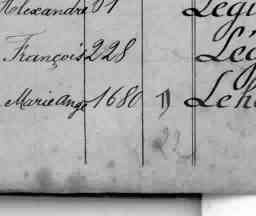 Alexandre 01 Legu
François 228 Lég
Marie Ange 1680 1) Leh
22